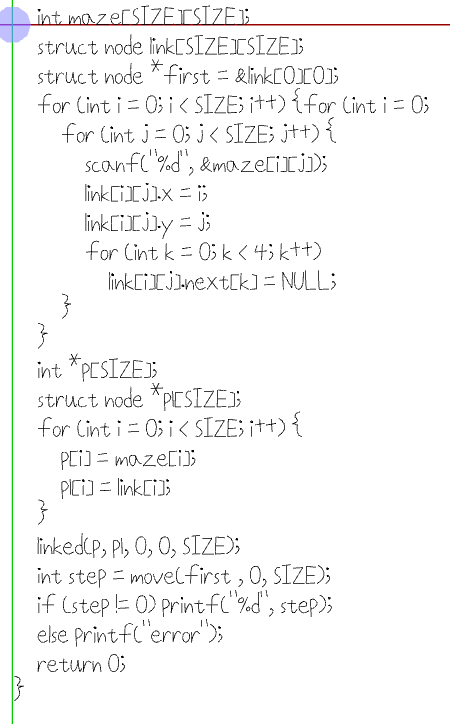 int maze[SIZE][SIZE];
struct node link[SIZE][SIZE];
struct node *first = &link[0][0];
for (int i = 0; i < SIZE; i++) {for (int i = 0;
for (int j = 0; j < SIZE; j++) {
scanf("%d", &maze[i][j]);
link[i][j].x = i;
link[i][j].y = j;
for (int k = 0; k < 4; k++)
link[i][j].next[k] = NULL;
}
}
int *p[SIZE];
struct node *pl[SIZE];
for (int i = 0; i < SIZE; i++) {
p[i] = maze[i];
pl[i] = link[i];
}
linked(p, pl, 0, 0, SIZE);
int step = move(first , 0, SIZE);
if (step != 0) printf("%d", step);
else printf("error");
return 0;
}